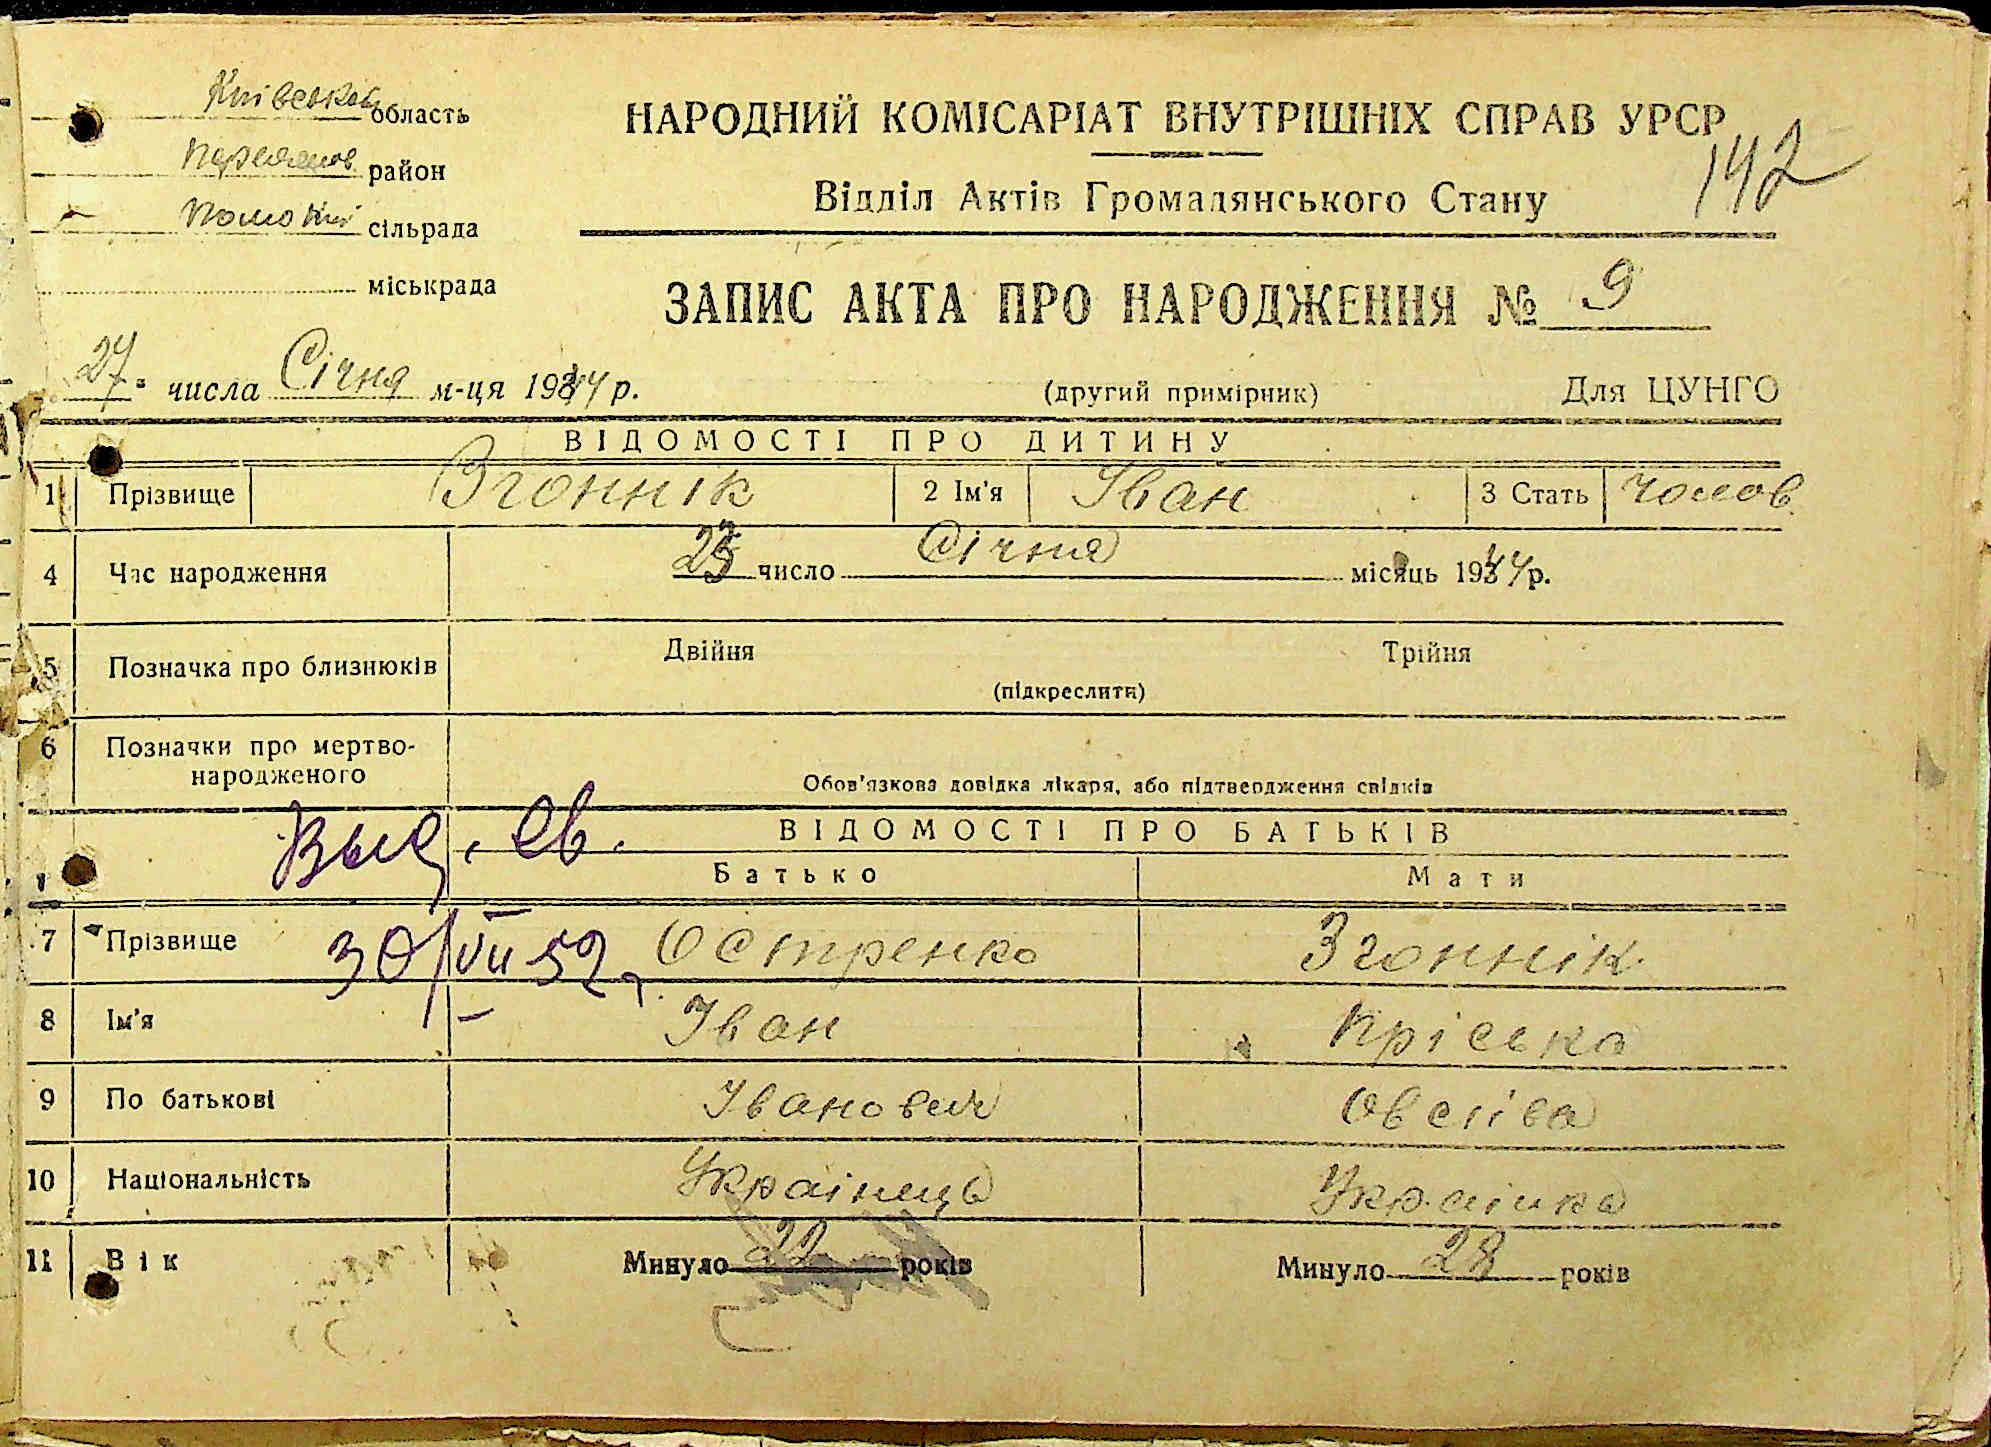 Київської область
район
сільрада
міськрада
НАРОДНИЙ КОМІСАРІАТ ВНУТРІШНІХ СПРАВ УРСР
142
Відділ Актів Громадянського Стану
ЗАПИС АКТА ПРО НАРОДЖЕННЯ № 9
27 числа Січня м-ця 1944 р.
(другий примірник)
Для ЦУНГО
ВІДОМОСТІ ПРО ДИТИНУ
1 Прізвище Згоннік 2 Ім'я Іван 3 Стать чолов.
4 Час народження число Січня місяць 1944 р.
5 Позначка про близнюків Двійня Трійня
(підкреслити)
6 Позначки про мертво-
народженого
Обов'язкова довідка лікаря, або підтвердження свідків
Выд. св.
ВІДОМОСТІ ПРО БАТЬКІВ
Батько Мати
30/VII 52
7 Прізвище Остренко Згоннік
8 Ім'я Іван Пріська
9 По батькові Іванович
10 Національність Українець Українка
11 Вік Минуло 22 років Минуло 28 років